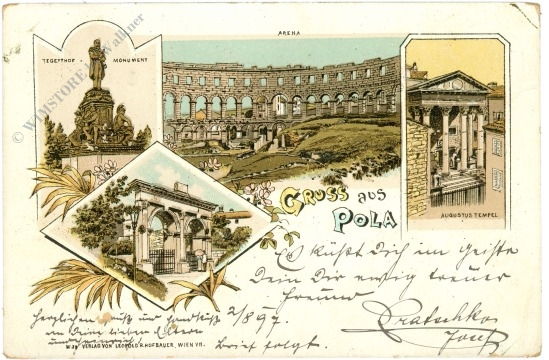 ARENA
TEGETTHOF - MONUMENT
© WIMSTORE Wallner
GRUSS aus
POLA
AUGUSTUS TEMPEL
Es küßt Dich im Geiste
Dein Dir ewig treuer
Freund
Herzlichen Gruß und Handkuß
an Deine lieben Eltern
und Heinrich!
2/8 97
Brief folgt.
Pratschko
Josef
VERLAG VON LEOPOLD R. HOFBAUER, WIEN VII.